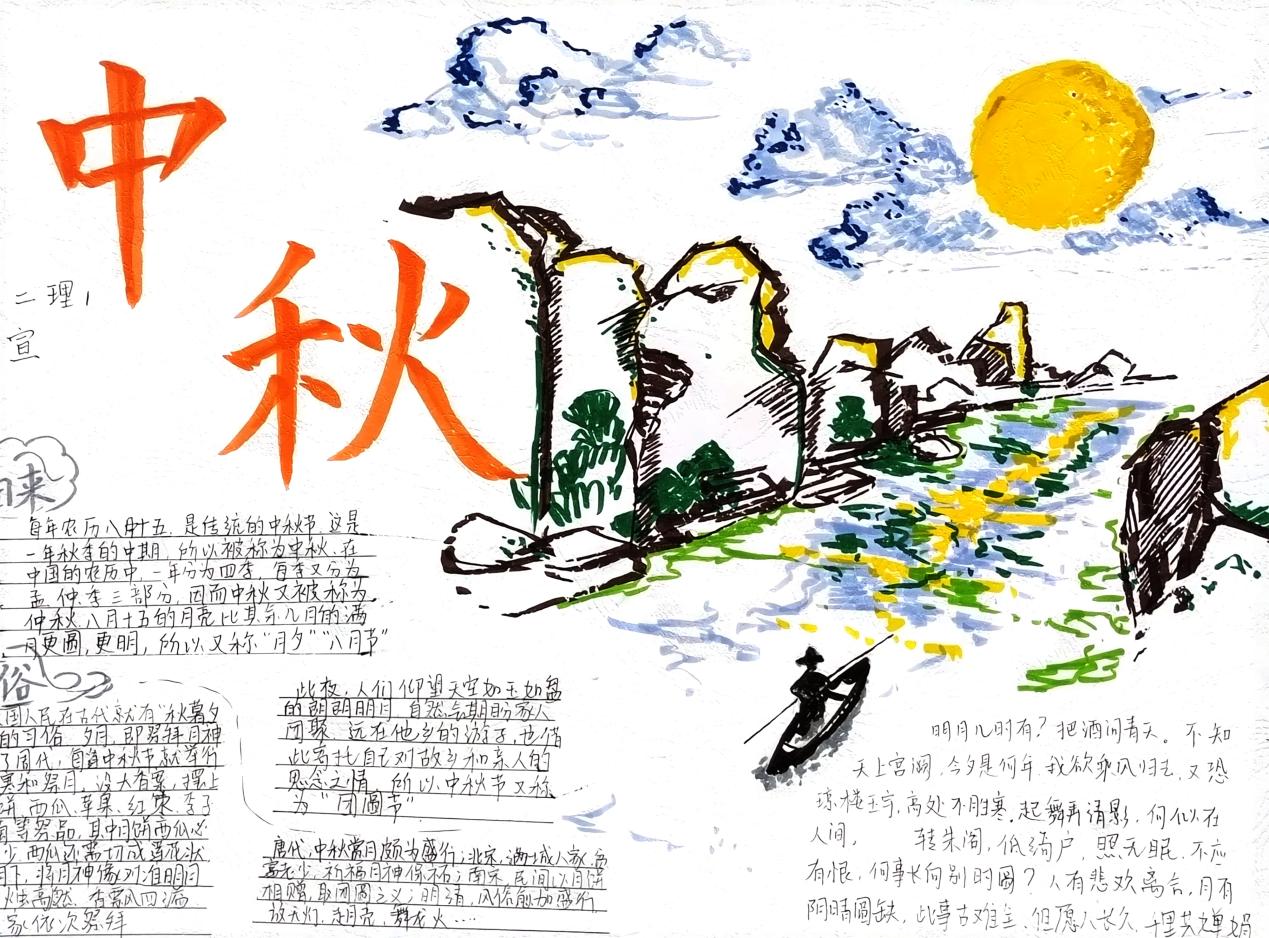 中
秋
二理1
宣
由来
每年农历八月十五，是传统的中秋节，这是
一年秋季的中期，所以被称为中秋。在
中国的农历中，一年分为四季，每季又分为
孟、仲、季三部分，因而中秋又被称为
仲秋，八月十五的月亮比其余几月的满
月更圆，更明，所以又称“月夕”“八月节”
俗
国人民在古代就有“秋暮夕
的习俗 夕月，即祭拜月神
了周代，每逢中秋节就举行
寒和祭月，设大香案，摆上
饼、西瓜、苹果、红枣、李子
等祭品，其中月饼西瓜必
少，西瓜还需切成莲花状
月下，将月神像对准明月
烛高燃，香飘四溢
家依次祭拜
此夜，人们仰望天空如玉如盘
的朗朗明月，自然会期盼家人
团聚，远在他乡的游子，也借
此寄托自己对故乡和亲人的
思念之情，所以中秋节又称
为“团圆节”
唐代，中秋赏月颇为盛行；北京，满城人家，
老少，祈福月神保祐；南宋，民间以月饼
相赠，取团圆之义；明清，风俗愈加盛行
放天灯，走月亮，舞龙火……
明月几时有？把酒问青天。不知
天上宫阙，今夕是何年，我欲乘风归去，又恐
琼楼玉宇，高处不胜寒，起舞弄清影，何似在
人间， 转朱阁，低绮户，照无眠，不应
有恨，何事长向别时圆？人有悲欢离合，月有
阴晴圆缺，此事古难全，但愿人长久，千里共婵娟